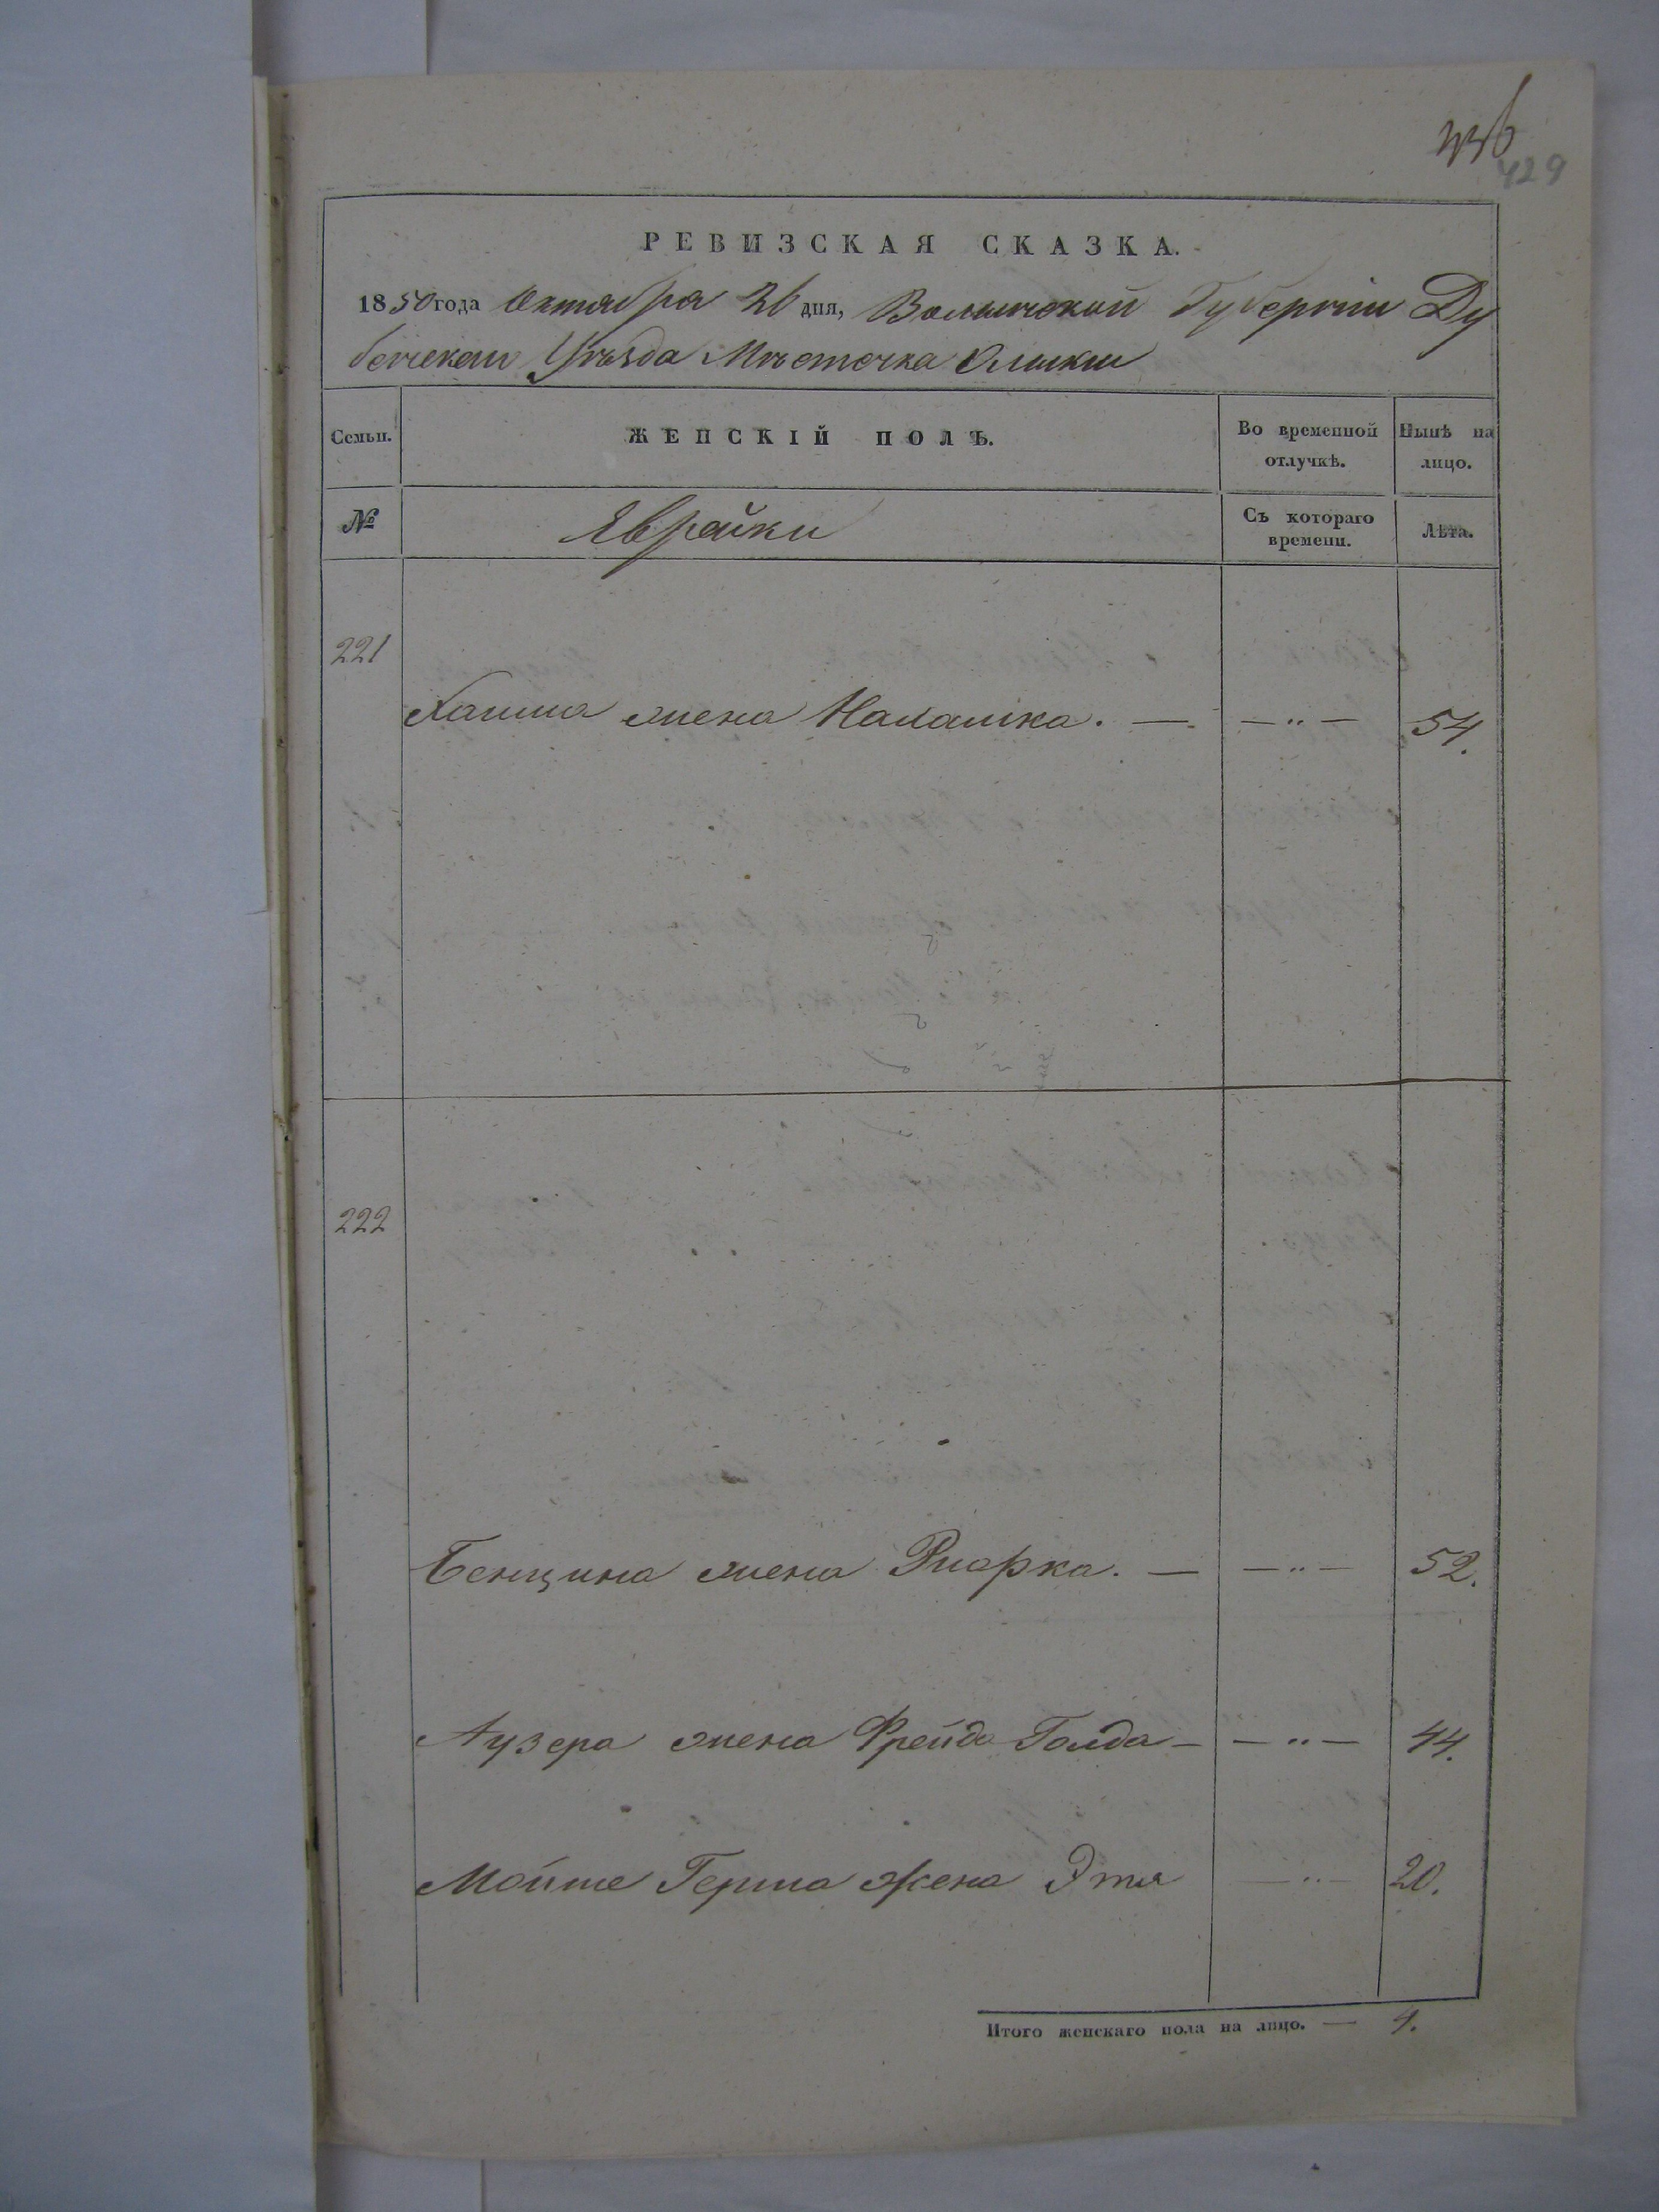 429
РЕВИЗСКАЯ СКАЗКА.
1850 года Октября 26 дня, Волынской Губерніи Ду
бенскаго Уѣзда Мѣстечка Олыки
Семьи. ЖЕНСКІЙ ПОЛЪ. Во временной отлучкѣ. Нынѣ на лицо.
№ Еврейки Съ котораго времени. Лѣта.
221
Хаима жена Малашка. — — „ — 54.
222
Бенциона жена Ривка. — — „ — 52.
Лузера жена Фрейда Голда — — „ — 44.
Мошке Герша жена Этя — „ — 20.
Итого женскаго пола на лицо. — 4.